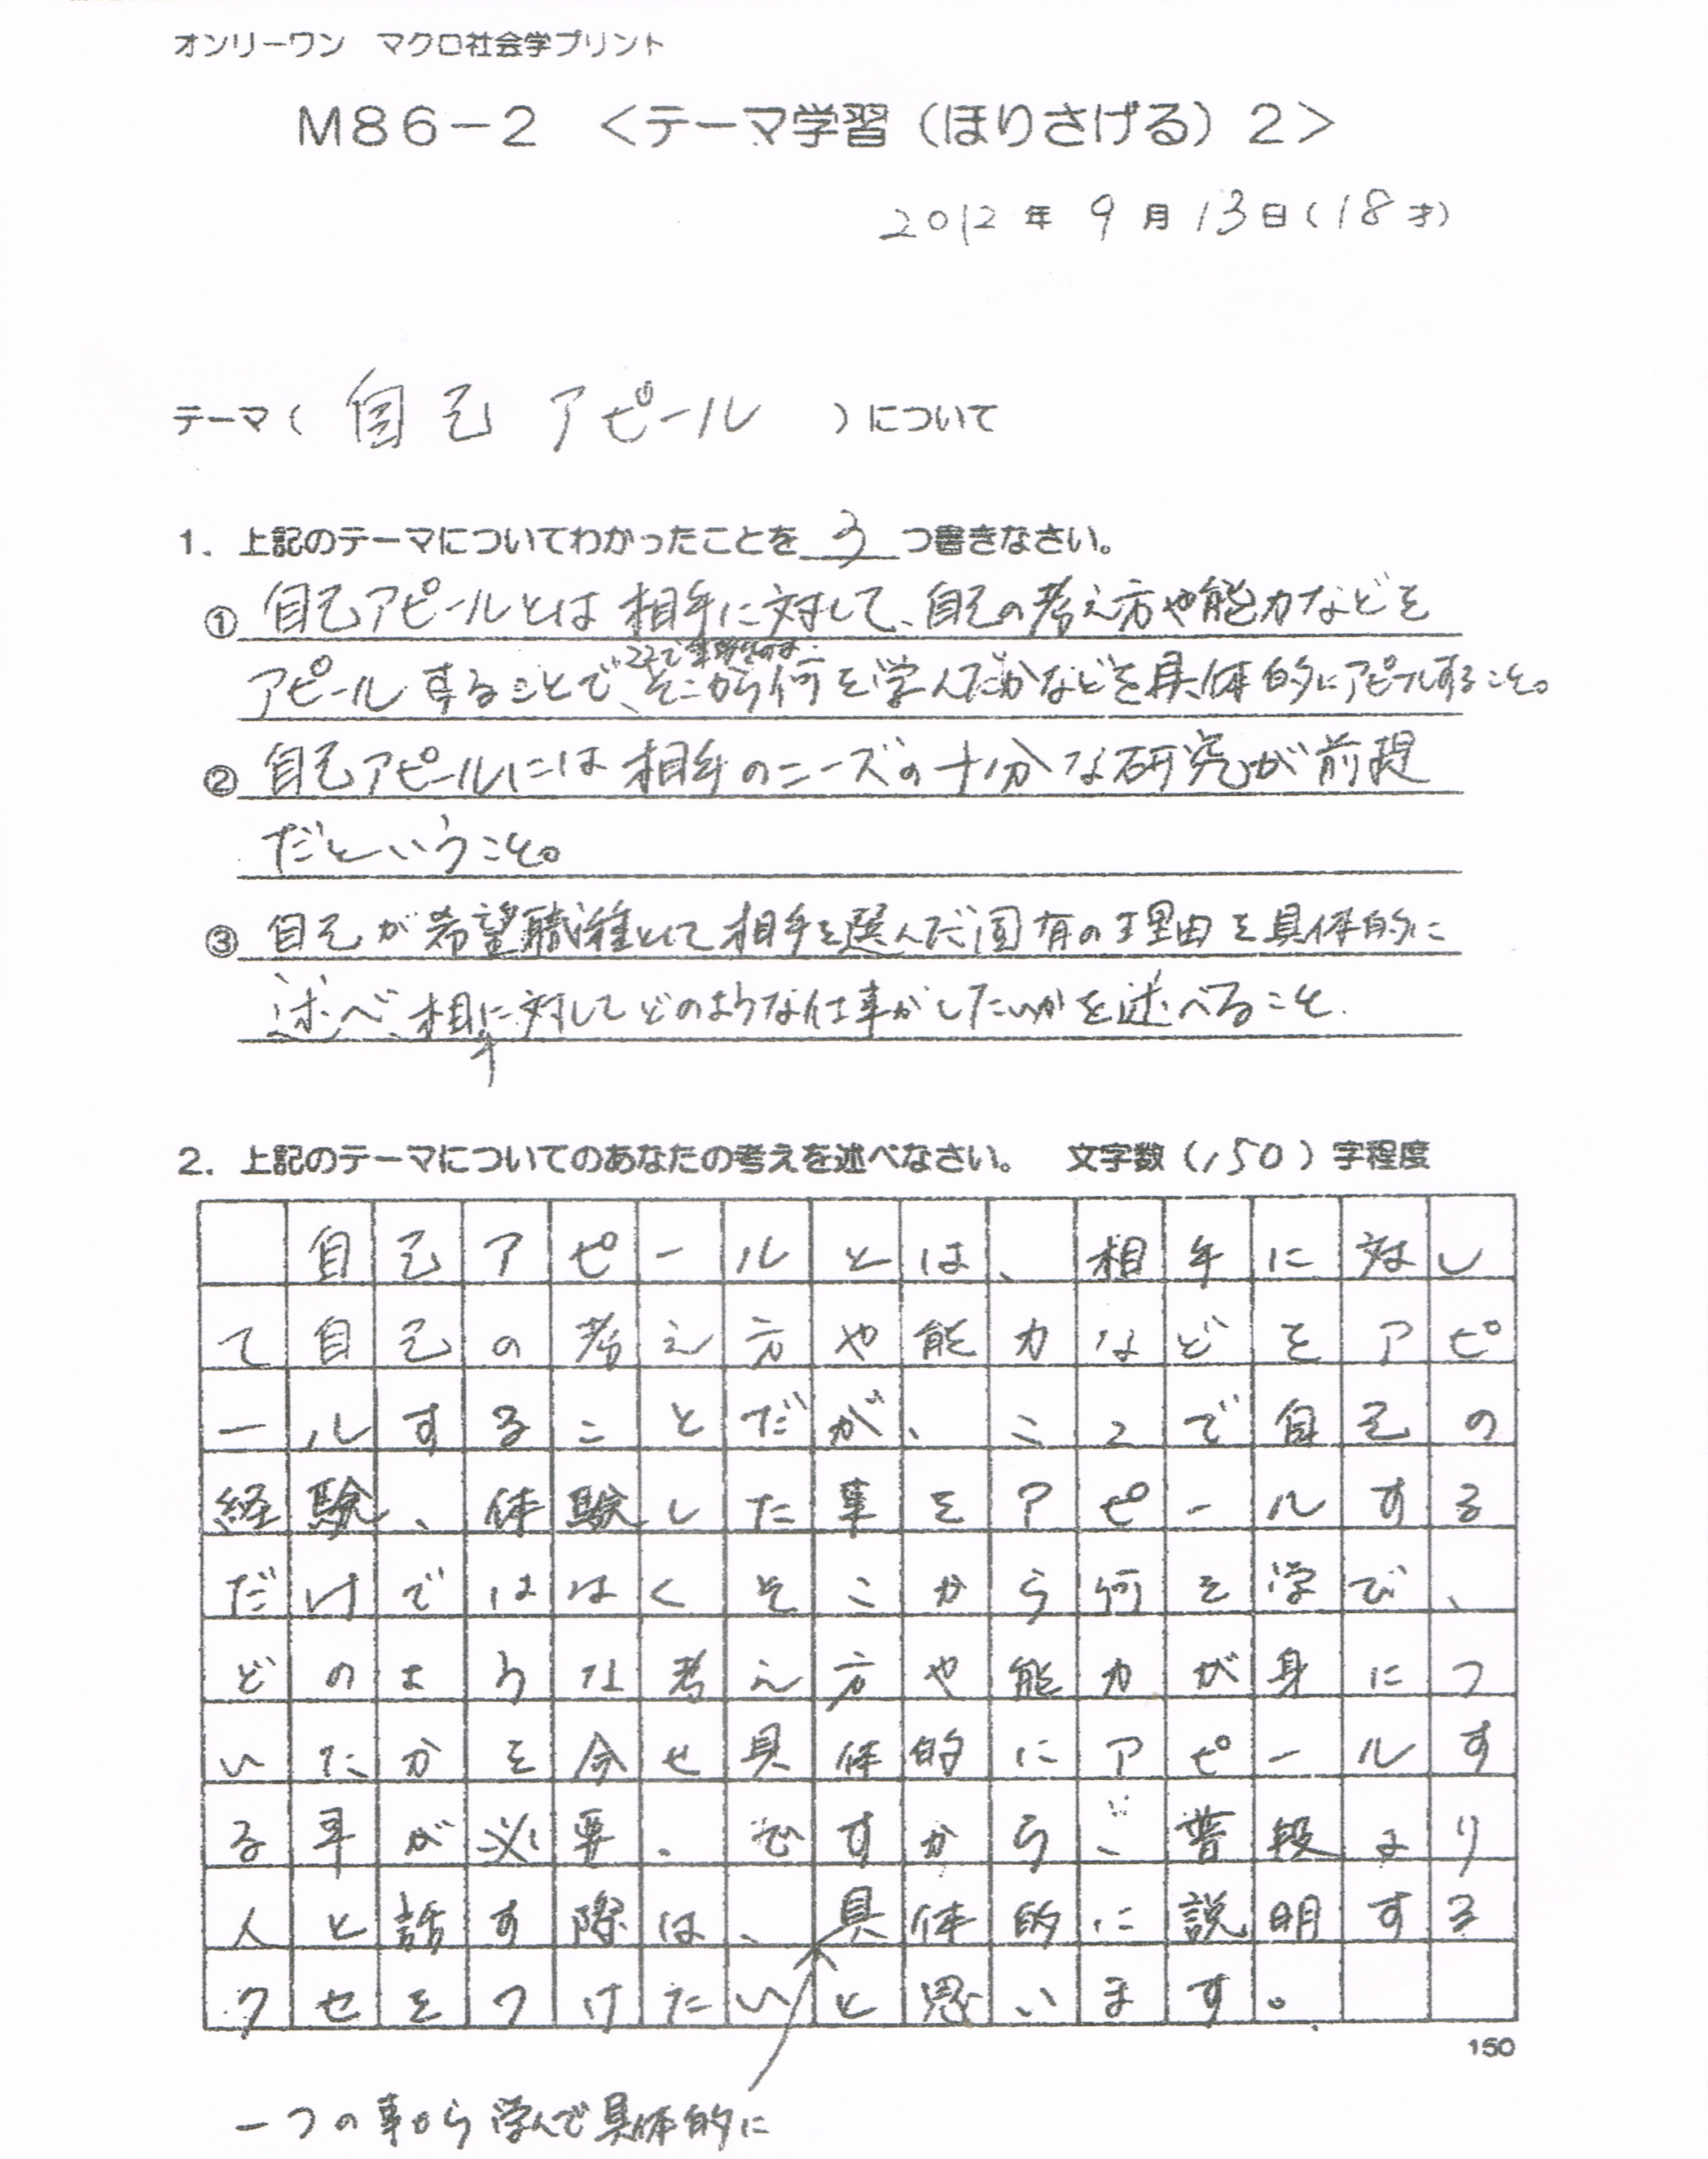 オンリーワン　マクロ社会学プリント
M86－2　＜テーマ学習（ほりさげる）2＞
2012年 9月 13日（18才）
テーマ（自己アピール）について
1．上記のテーマについてわかったことを 3 つ書きなさい。
① 自己アピールとは相手に対して、自己の考え方や能力などを
ここで
アピールすることで、そこから何を学んだかなどを具体的にアピールすること。
② 自己アピールには相手のニーズの十分な研究が前提
だということ。
③ 自己が希望職種として相手を選んだ固有の理由を具体的に
述べ、相に対してどのような仕事がしたいかを述べること.
2．上記のテーマについてのあなたの考えを述べなさい。　文字数（150）字程度
自己アピールとは、相手に対し
て自己の考え方や能力などをアピ
ールすることだが、ここで自己の
経験、体験した事をアピールする
だけでははくそこから何を学び、
どのような考え方や能力が身につ
いたかを合せ具体的にアピールす
る事が必要。ですから、普段より
人と話す際は、具体的に説明する
クセをつけたいと思います。
150
一つの事から学んで具体的に